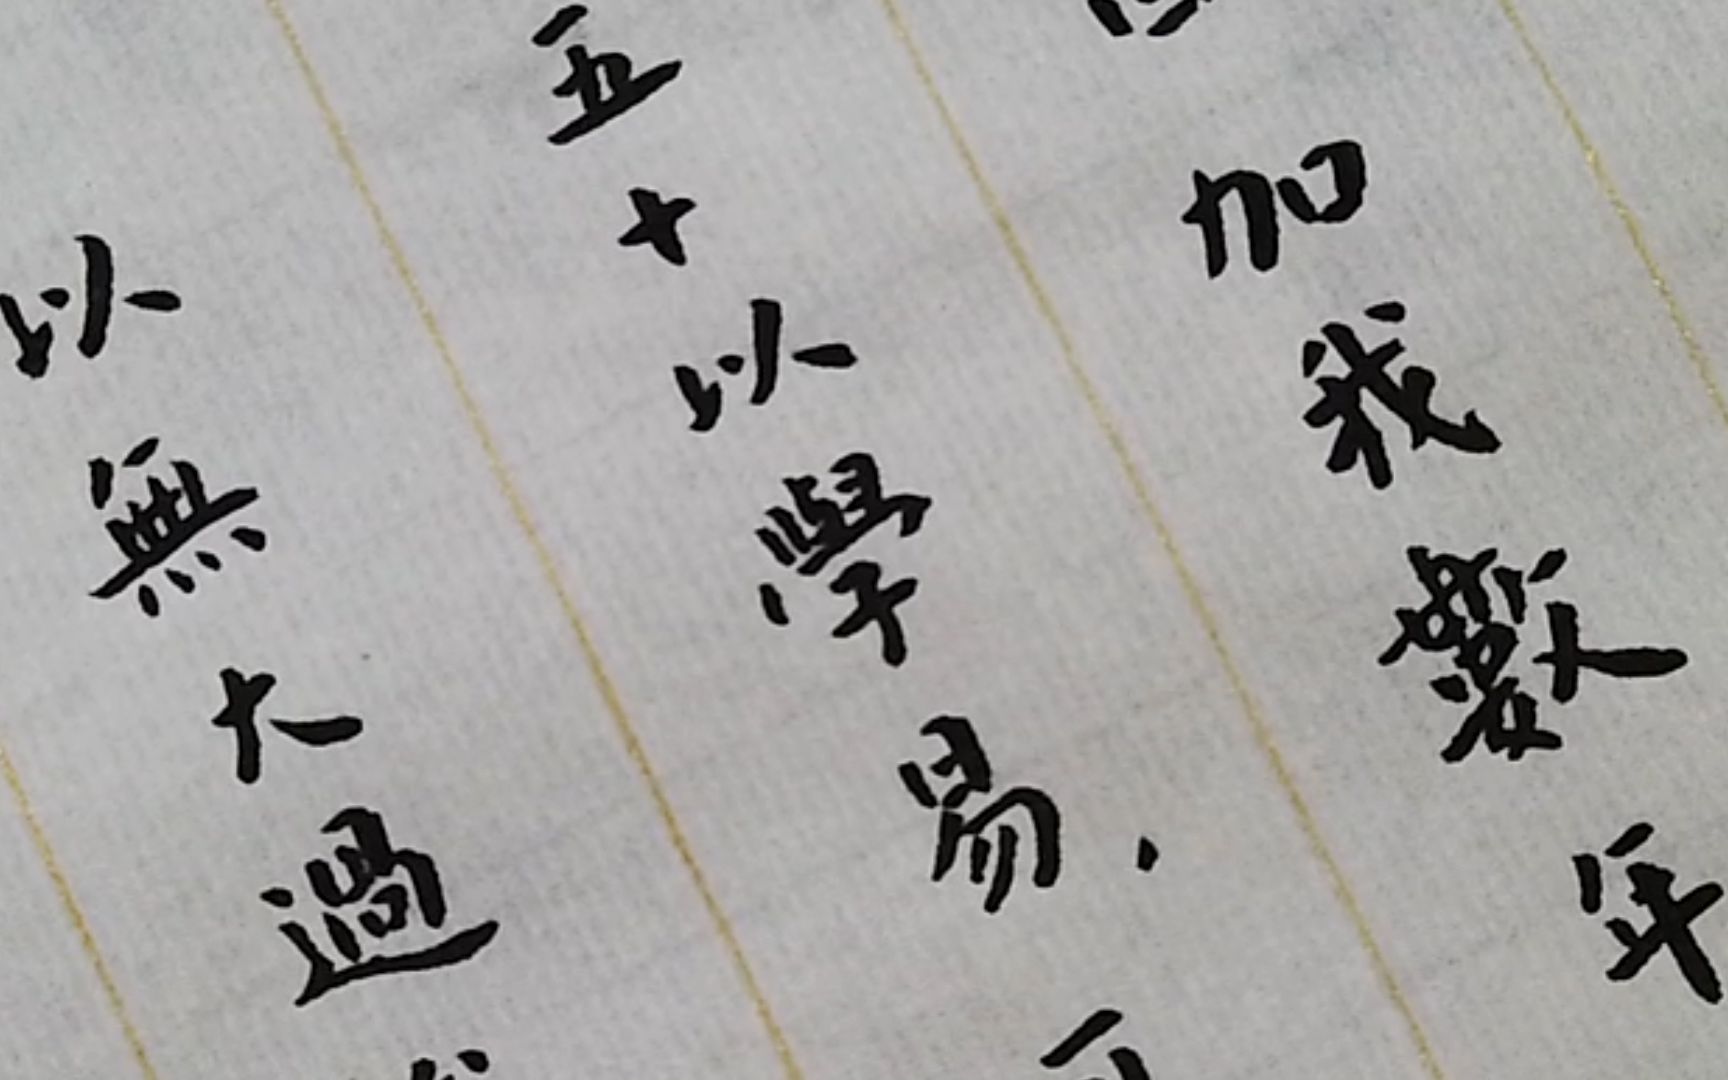 加我數年
五十以學易，可
以無大過